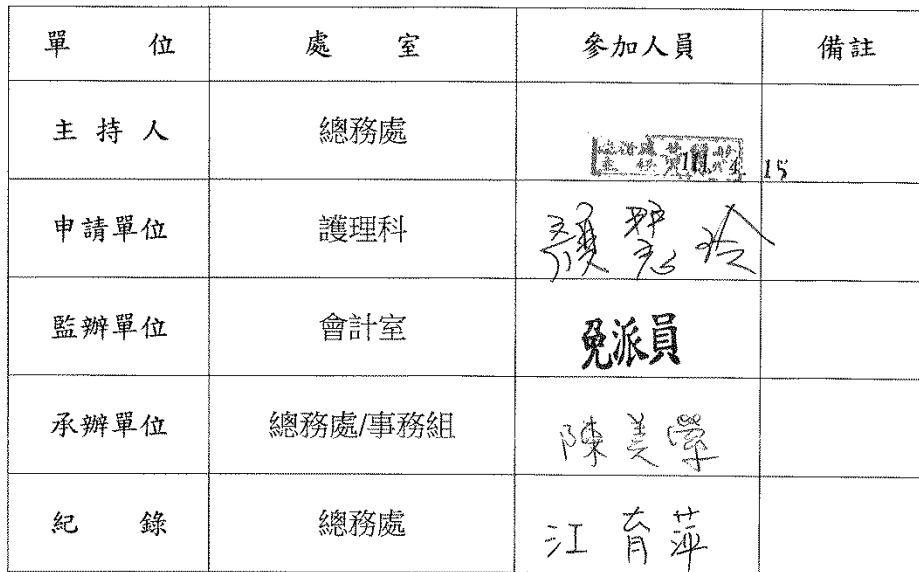 單 位 處 室 參加人員 備註
主 持 人 總務處 15
申請單位 護理科 慧玲
監辦單位 會計室 免派員
承辦單位 總務處/事務組 陳美縈
紀 錄 總務處 江育萍